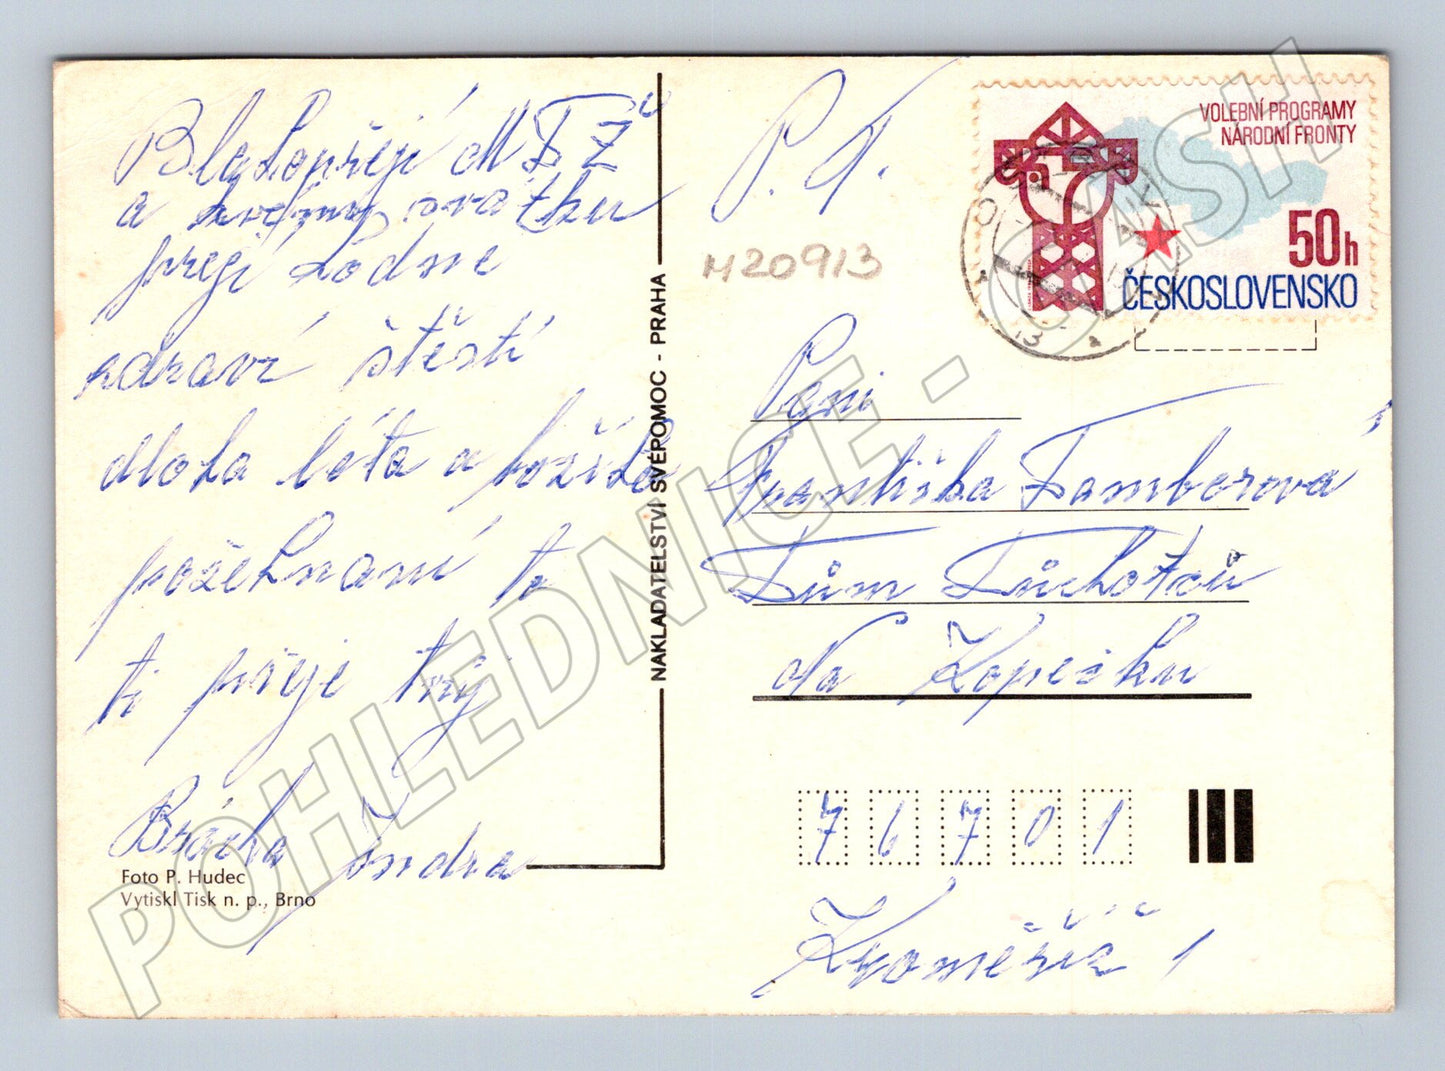 Blahopřeji M D Ž
a svátku
přeji hodně
zdraví štěstí
dlohá léta a božího
požehnaní ti
ti přeje tvůj
Brácha Jindra
Foto P. Hudec
Vytiskl Tisk n. p., Brno
NAKLADATELSTVÍ SVÉPOMOC - PRAHA
P. T.
M20913
VOLEBNÍ PROGRAMY
NÁRODNÍ FRONTY
50h
ČESKOSLOVENSKO
Paní
Františka Tamborová
Dům Důchotců
Na Kopečku
76701
Kroměříž 1
POHLEDNICE - CASH